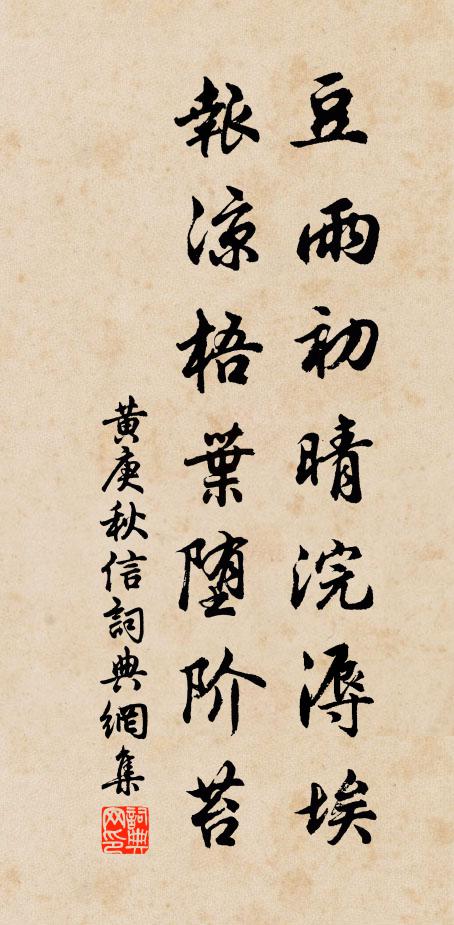 豆雨初晴浣溽埃
報涼梧葉墮阶苔
黃庚秋信詞典網集
詞典网印